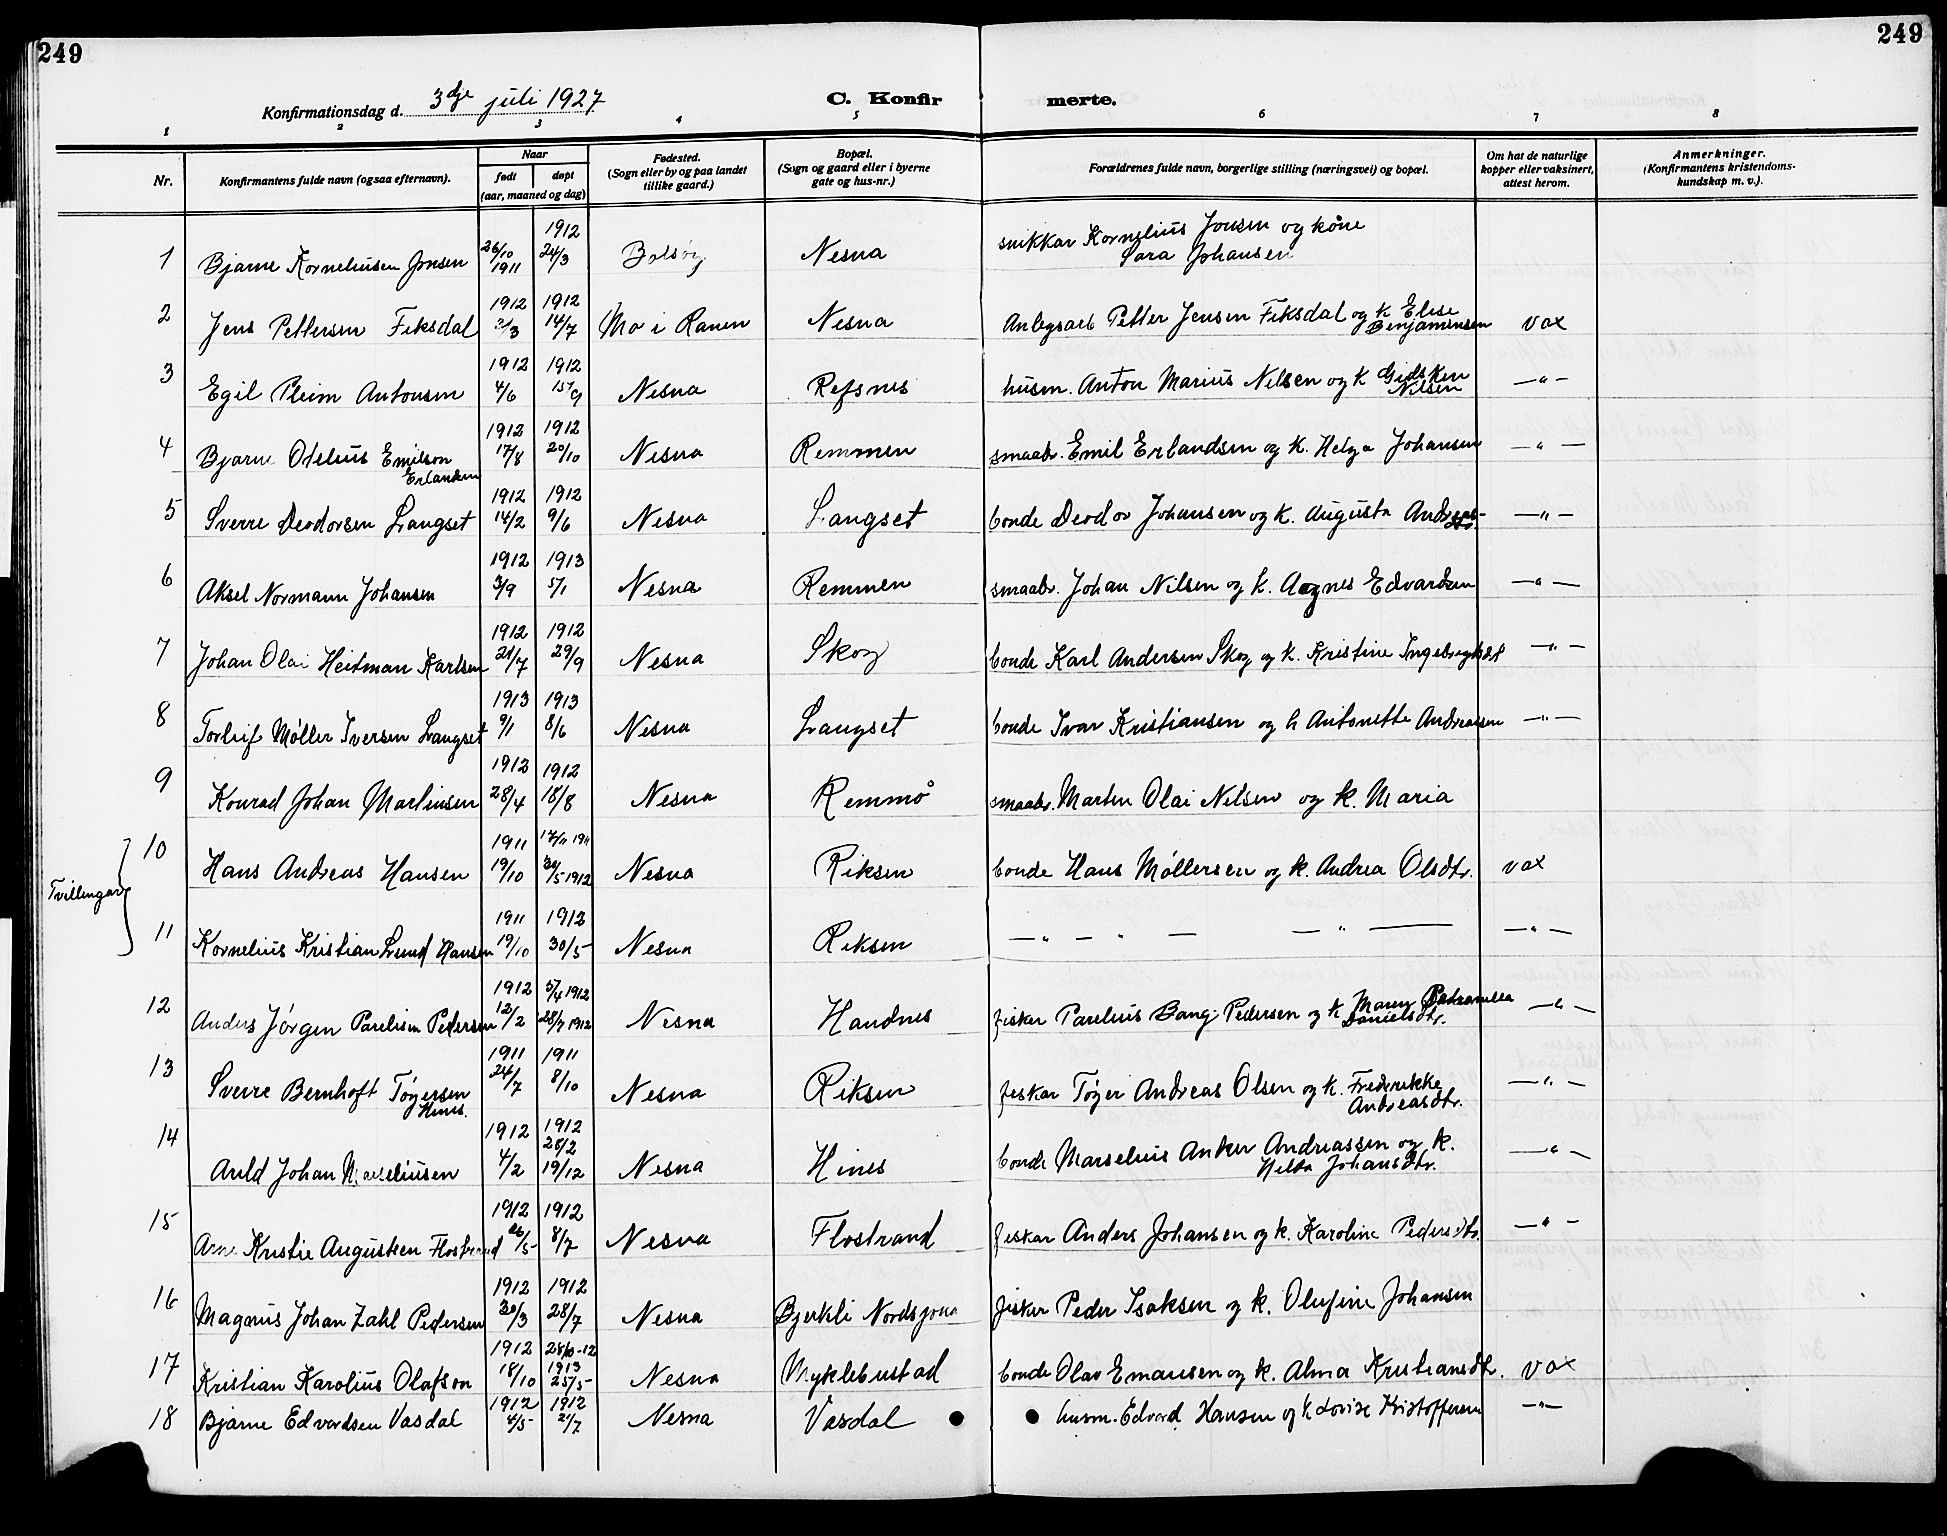 249
249
Konfirmationsdag d. 3dje juli 1927
C. Konfir merte.
1 2 3 4 5 6 7 8
Nr.
Konfirmantens fulde navn (ogsaa efternavn).
Naar
født
døpt
(aar, maaned og dag)
Fødested.
(Sogn eller by og paa landet
tillike gaard.)
Bopæl.
(Sogn og gaard eller i byerne
gate og hus-nr.)
Forældrenes fulde navn, borgerlige stilling (næringsvei) og bopæl.
Om hat de naturlige
kopper eller vaksinert,
attest herom.
Anmerkninger.
(Konfirmantens kristendoms-
kundskap m. v.).
1 Bjarne Korneliusen Jonsen 26/10 1911 1912 24/3 Bolsøy Nesna snikkar Kornelius Jonsen og kone
Sara Johansen
2 Jens Pettersen Fiksdal 1912 3/3 1912 14/7 Mo i Ranen Nesna Anlegsarb Petter Jensen Fiksdal og k Elise
Benjaminsen vax
3 Egil Pleim Antonsen 1912 4/6 1912 15/9 Nesna Refsnes husm. Anton Marius Nilsen og k Gidsken
Nilsen —"—
4 Bjarne Otelius Emilson
Erlandsen 1912 17/8 1912 20/10 Nesna Remmen smaabr. Emil Erlandsen og k. Helga Johansen —"—
5 Sverre Deodorsen Langset 1912 14/2 1912 9/6 Nesna Langset bonde Deodor Johansen og k. Augusta Andreas-
dtr. —"—
6 Aksel Normann Johansen 1912 3/9 1913 5/1 Nesna Remmen smaabr. Johan Nilsen og k. Agnes Edvardsen —"—
7 Johan Olai Heitman Karlsen 1912 21/7 1912 29/9 Nesna Skog bonde Karl Andersen Skog og k. Kristine Ingebrigtsdt —"—
8 Torleif Møller Iversen Langset 1913 9/1 1913 8/6 Nesna Langset bonde Ivar Kristiansen og h Antonette Andreassen —"—
9 Konrad Johan Martinsen 1912 28/4 1912 18/8 Nesna Remmå smaabr. Martin Olai Nilsen og k. Maria
Tvillingar
10 Hans Andreas Hansen 1911 19/10 17/11 1911 30/5 1912 Nesna Riksen bonde Hans Møllersen og k. Andrea Olsdtr. vax
11 Kornelius Kristian Lund Hansen 1911 19/10 1912 30/5 Nesna Riksen — " — " — — " — —"—
12 Anders Jørgen Pareliusen Pedersen 1912 12/2 5/4 1912 28/7 1912 Nesna Handnes fisker Parelius Bang Pedersen og k Maren Petramella
Danielsdtr. —"—
13 Sverre Bernhoft Tøgersen
Hines. 1911 24/7 1911 8/10 Nesna Riksen fiskar Tøger Andreas Olsen og k. Frederikke
Andreasdtr. —"—
14 Arild Johan Marseliusen 1912 4/2 1912 28/2 19/12 Nesna Hines bonde Marselius Anker Andreassen og k.
Johansdtr. —"—
15 Arne Kristie Augustsen Flostrand 1912 26/5 1912 8/7 Nesna Flostrand fiskar Anders Johansen og k. Karoline Pedersdtr. —"—
16 Magnus Johan Zahl Pedersen 1912 30/3 1912 28/7 Nesna Bjerkli Nordsjona fisker Peder Isaksen og k. Olufine Johansen
17 Kristian Karolius Olafson 1912 18/10 28/10-12 1913 25/5 Nesna Myklebustad bonde Olav Emausen og k. Alma Kristiansdtr. vax
18 Bjarne Edvardsen Vasdal 1912 4/5 1912 2/7 Nesna Vasdal husm. Edvard Hansen og k Lovise Kristoffersen —"—